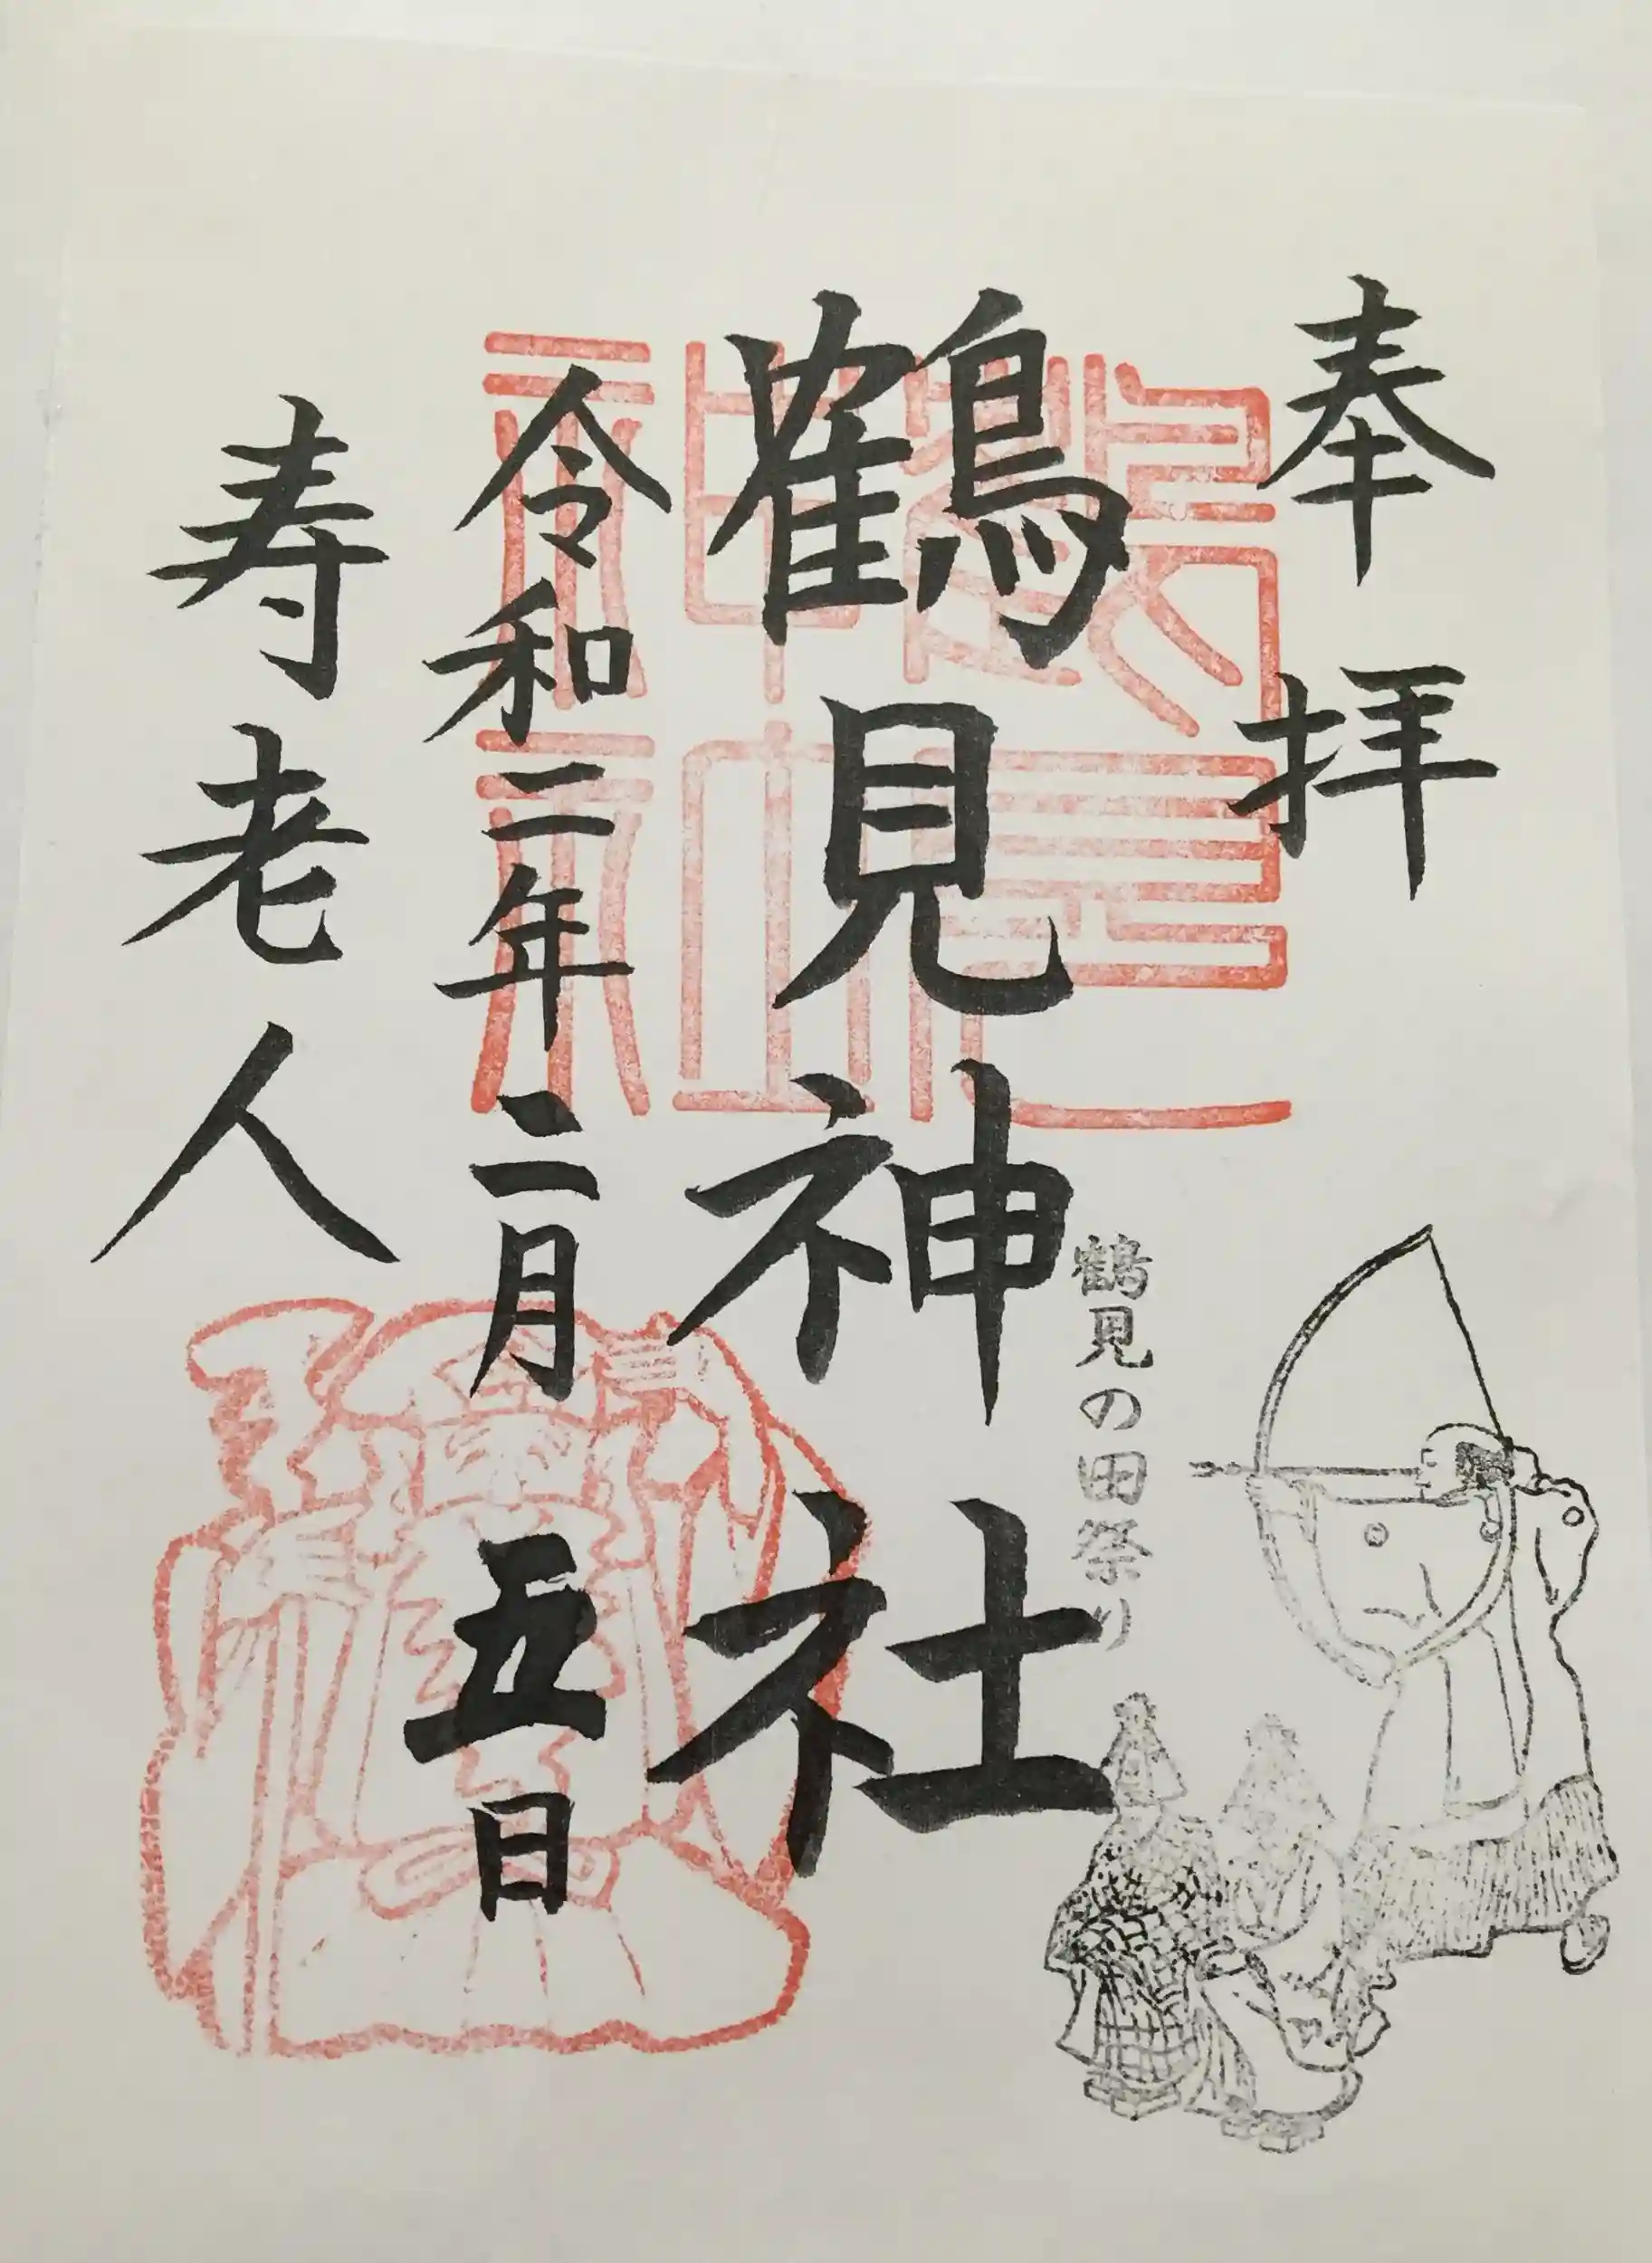 奉拝
鶴見神社
鶴見の田祭り
令和二年二月五日
寿老人